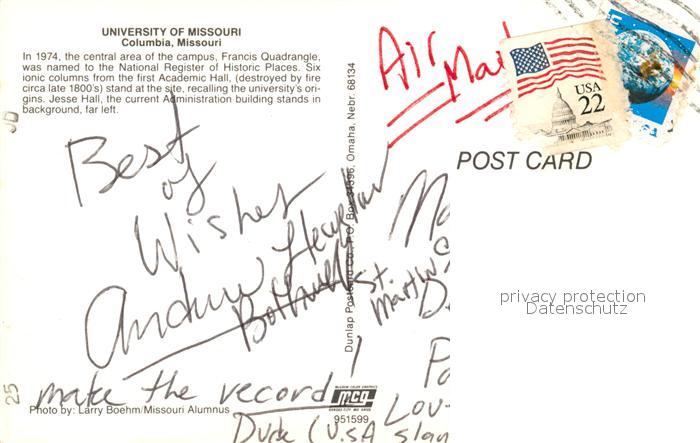 UNIVERSITY OF MISSOURI
Columbia, Missouri
In 1974, the central area of the campus, Francis Quadrangle,
was named to the National Register of Historic Places. Six
ionic columns from the first Academic Hall, (destroyed by fire
circa late 1800's) stand at the site, recalling the university's ori-
gins. Jesse Hall, the current Administration building stands in
background, far left.
Air
Mail
USA
22
POST CARD
Best
of
Wishes
Andrew
St.
make the record!
Dude (U.SA
Photo by: Larry Boehm/Missouri Alumnus
Dunlap Postcard Co., P.O. Box 34396, Omaha, Nebr. 68134
mcg
951599
25
privacy protection
Datenschutz